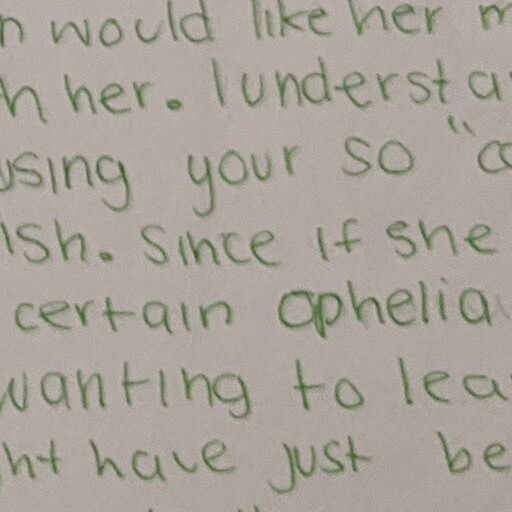 n would like her m
h her. I understa
using your so "co
ish. Since if she
certain Ophelia
wanting to lea
ht have just be